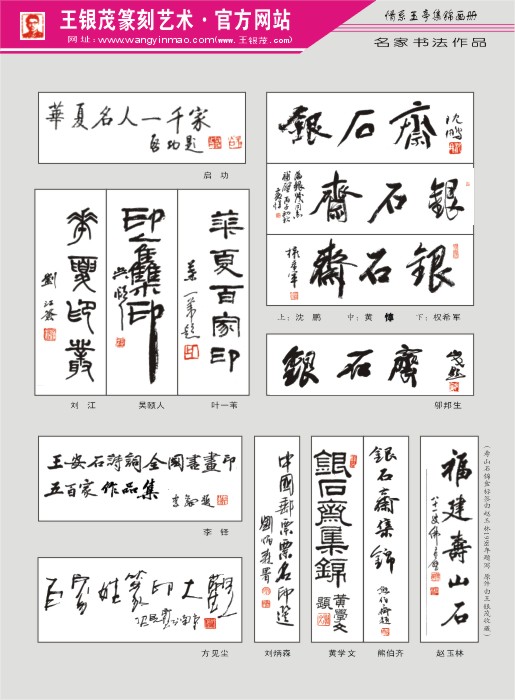 王银茂篆刻艺术·官方网站
网址:www.wangyinmao.com(www.王银茂.com)
情系玉亭集锦画册
名家书法作品
華夏名人一千家
启功题
启 功
銀石齋
沈鹏
銀石齋
銀石齋
上：沈 鹏 中：黄 惇 下：权希军
華夏印叢
劉江署
印人集印
華夏百家印
葉一苇題
刘 江
吴颐人
叶一苇
銀石齋
邬邦生
王安石詩詞全國書畫印
五百家作品集
李鐸題
李 铎
百家姓篆印大觀
方见尘
中國郵票票名印選
劉炳森署
刘炳森
銀石齋集錦
黄學文題
黄学文
銀石齋集錦
熊伯齊題
熊伯齐
福建壽山石
赵玉林